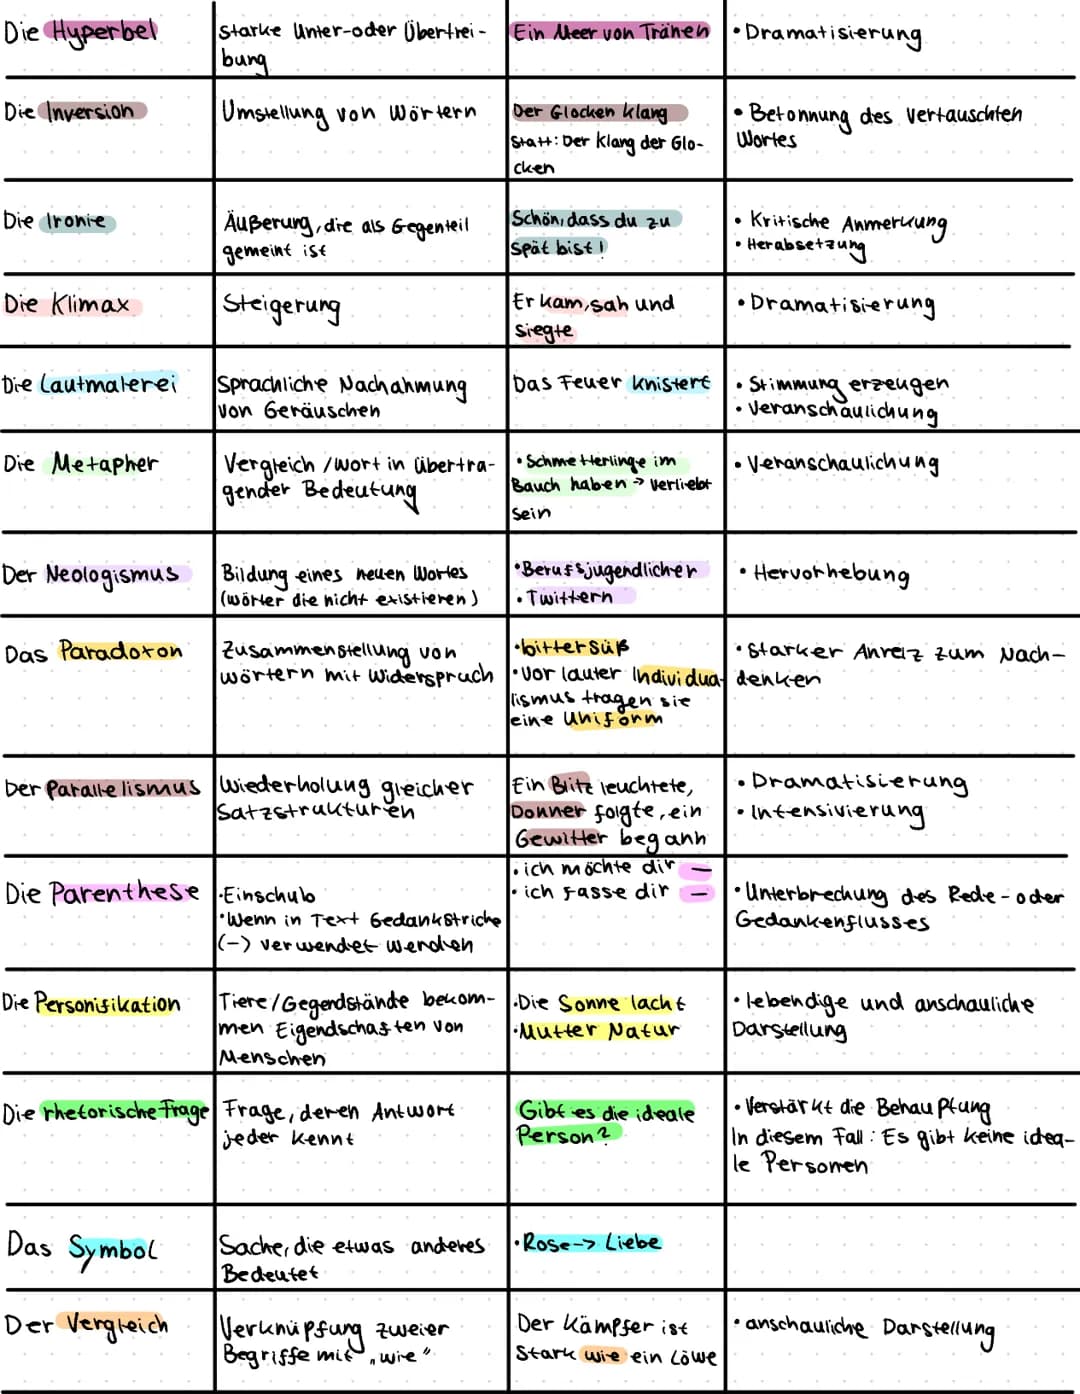 Die Hyperbel
starke Unter-oder Übertrei-
bung
Ein Meer von Tränen
• Dramatisierung
Die Inversion
Umstellung von Wörtern
Der Glocken klang
statt: Der Klang der Glo-
cken
• Betonnung des vertauschten
Wortes
Die Ironie
Äußerung, die als Gegenteil
gemeint ist
Schön, dass du zu
spät bist!
• Kritische Anmerkung
• Herabsetzung
Die Klimax
Steigerung
Er kam, sah und
siegte
• Dramatisierung
Die Lautmalerei
Sprachliche Nachahmung
von Geräuschen
Das Feuer knistert
• Stimmung erzeugen
• Veranschaulichung
Die Metapher
Vergleich /Wort in übertra-
gender Bedeutung
• Schmetterlinge im
Bauch haben → verliebt
sein
• Veranschaulichung
Der Neologismus
Bildung eines neuen Wortes
(wörter die nicht existieren)
• Berufsjugendlicher
• Twittern
• Hervorhebung
Das Paradoxon
Zusammenstellung von
wörtern mit Widerspruch
• bittersüß
• Vor lauter Individua-
lismus tragen sie
eine Uniform
• Starker Anreiz zum Nach-
denken
Der Parallelismus
Wiederholung gleicher
Satzstrukturen
Ein Blitz leuchtete,
Donner folgte, ein
Gewitter begann
• Dramatisierung
• Intensivierung
Die Parenthese
• Einschub
• Wenn in Text Gedankstriche
(-) verwendet werden
• ich möchte dir —
• ich fasse dir —
• Unterbrechung des Rede-oder
Gedankenflusses
Die Personifikation
Tiere/Gegendstände bekom-
men Eigendschaften von
Menschen
• Die Sonne lacht
• Mutter Natur
• lebendige und anschauliche
Darstellung
Die rhetorische Frage
Frage, deren Antwort
jeder kennt
Gibt es die ideale
Person?
• Verstärkt die Behauptung
In diesem Fall: Es gibt keine idea-
le Personen
Das Symbol
Sache, die etwas anderes
Bedeutet
• Rose-> Liebe
Der Vergleich
Verknüpfung zweier
Begriffe mit „wie"
Der Kämpfer ist
Stark wie ein Löwe
• anschauliche Darstellung